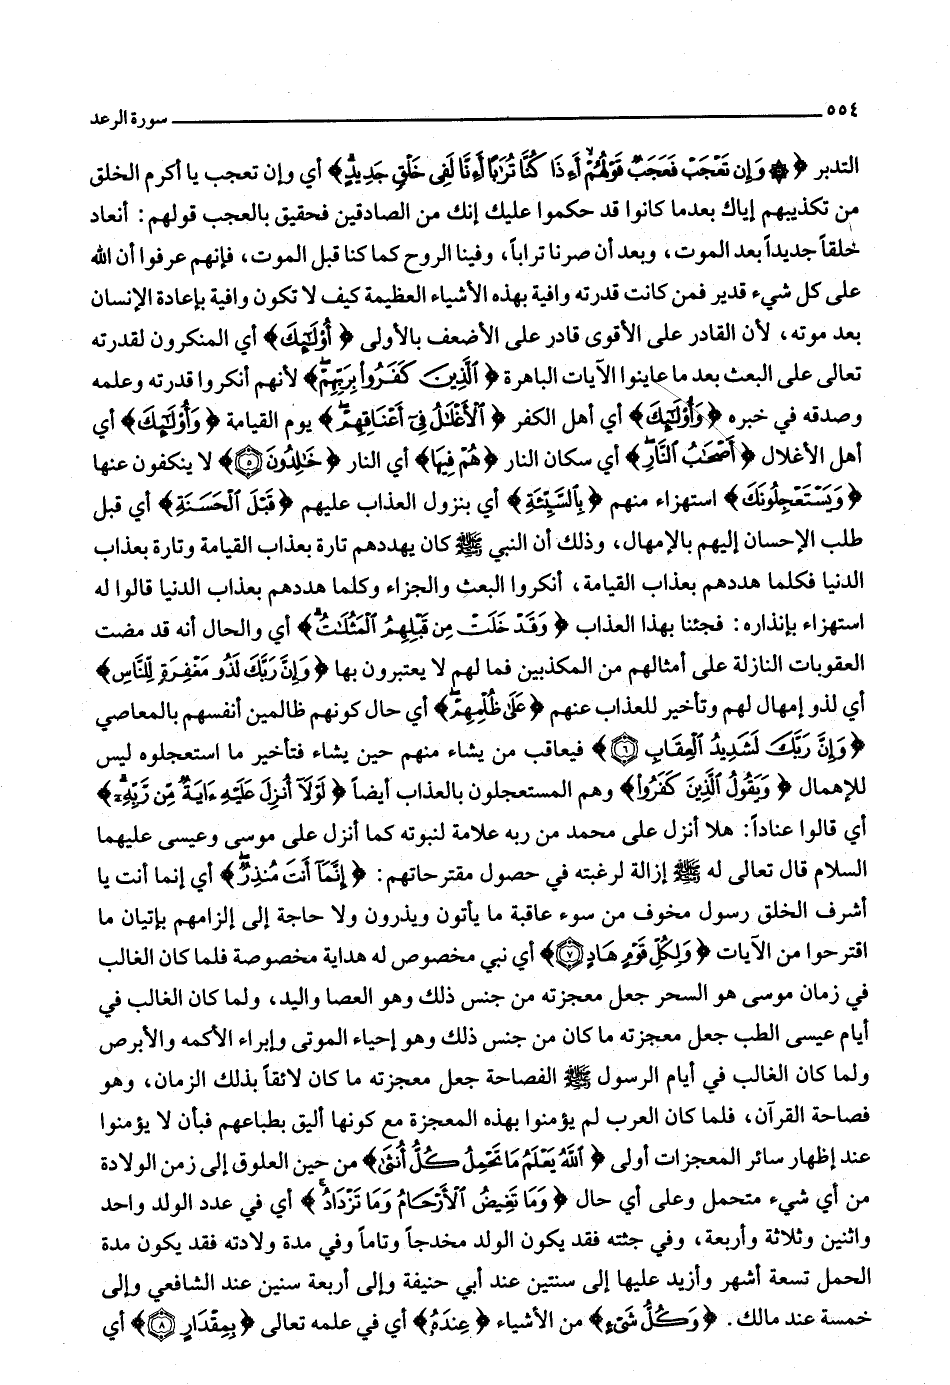 ٥٥٤ سورة الرعد
التدبر ﴿ ۞ وَإِن تَعْجَبْ فَعَجَبٌ قَوْلُهُمْ أَءِذَا كُنَّا تُرَابًا أَءِنَّا لَفِي خَلْقٍ جَدِيدٍ﴾ أي وإن تعجب يا أكرم الخلق
من تكذيبهم إياك بعدما كانوا قد حكموا عليك إنك من الصادقين فحقيق بالعجب قولهم: أنعاد
خلقاً جديداً بعد الموت، وبعد أن صرنا تراباً، وفينا الروح كما كنا قبل الموت، فإنهم عرفوا أن الله
على كل شيء قدير فمن كانت قدرته وافية بهذه الأشياء العظيمة كيف لا تكون وافية بإعادة الإنسان
بعد موته، لأن القادر على الأقوى قادر على الأضعف بالأولى ﴿ أُوْلَٰٓئِكَ﴾ أي المنكرون لقدرته
تعالى على البعث بعد ما عاينوا الآيات الباهرة ﴿ ٱلَّذِينَ كَفَرُواْ بِرَبِّهِمْ﴾ لأنهم أنكروا قدرته وعلمه
وصدقه في خبره ﴿وَأُوْلَٰٓئِكَ﴾ أي أهل الكفر ﴿ ٱلْأَغْلَٰلُ فِيٓ أَعْنَاقِهِمْ﴾ يوم القيامة ﴿ وَأُوْلَٰٓئِكَ﴾ أي
أهل الأغلال ﴿ أَصْحَٰبُ ٱلنَّارِ﴾ أي سكان النار ﴿هُمْ فِيهَا﴾ أي النار ﴿ خَٰلِدُونَ ٥﴾ لا ينكفون عنها
﴿ وَيَسْتَعْجِلُونَكَ﴾ استهزاء منهم ﴿ بِٱلسَّيِّئَةِ﴾ أي بنزول العذاب عليهم ﴿قَبْلَ ٱلْحَسَنَةِ﴾ أي قبل
طلب الإحسان إليهم بالإمهال، وذلك أن النبي ﷺ كان يهددهم تارة بعذاب القيامة وتارة بعذاب
الدنيا فكلما هددهم بعذاب القيامة، أنكروا البعث والجزاء وكلما هددهم بعذاب الدنيا قالوا له
استهزاء بإنذاره: فجئنا بهذا العذاب ﴿ وَقَدْ خَلَتْ مِن قَبْلِهِمُ ٱلْمَثُلَٰتُ﴾ أي والحال أنه قد مضت
العقوبات النازلة على أمثالهم من المكذبين فما لهم لا يعتبرون بها ﴿ وَإِنَّ رَبَّكَ لَذُو مَغْفِرَةٍ لِّلنَّاسِ﴾
أي لذو إمهال لهم وتأخير للعذاب عنهم ﴿عَلَىٰ ظُلْمِهِمْ﴾ أي حال كونهم ظالمين أنفسهم بالمعاصي
﴿ وَإِنَّ رَبَّكَ لَشَدِيدُ ٱلْعِقَابِ ٦﴾ فيعاقب من يشاء منهم حين يشاء فتأخير ما استعجلوه ليس
للإهمال ﴿ وَيَقُولُ ٱلَّذِينَ كَفَرُواْ﴾ وهم المستعجلون بالعذاب أيضاً ﴿ لَوْلَآ أُنزِلَ عَلَيْهِ ءَايَةٌ مِّن رَّبِّهِۦ﴾
أي قالوا عناداً: هلا أنزل على محمد من ربه علامة لنبوته كما أنزل على موسى وعيسى عليهما
السلام قال تعالى له ﷺ إزالة لرغبته في حصول مقترحاتهم: ﴿ إِنَّمَآ أَنتَ مُنذِرٌ﴾ أي إنما أنت يا
أشرف الخلق رسول مخوف من سوء عاقبة ما يأتون ويذرون ولا حاجة إلى إلزامهم بإتيان ما
اقترحوا من الآيات ﴿ وَلِكُلِّ قَوْمٍ هَادٍ ٧﴾ أي نبي مخصوص له هداية مخصوصة فلما كان الغالب
في زمان موسى هو السحر جعل معجزته من جنس ذلك وهو العصا واليد، ولما كان الغالب في
أيام عيسى الطب جعل معجزته ما كان من جنس ذلك وهو إحياء الموتى وإبراء الأكمه والأبرص
ولما كان الغالب في أيام الرسول ﷺ الفصاحة جعل معجزته ما كان لائقاً بذلك الزمان، وهو
فصاحة القرآن، فلما كان العرب لم يؤمنوا بهذه المعجزة مع كونها أليق بطباعهم فبأن لا يؤمنوا
عند إظهار سائر المعجزات أولى ﴿ ٱللَّهُ يَعْلَمُ مَا تَحْمِلُ كُلُّ أُنثَىٰ﴾ من حين العلوق إلى زمن الولادة
من أي شيء متحمل وعلى أي حال ﴿ وَمَا تَغِيضُ ٱلْأَرْحَامُ وَمَا تَزْدَادُ﴾ أي في عدد الولد واحد
واثنين وثلاثة وأربعة، وفي جثته فقد يكون الولد مخدجاً وتاماً وفي مدة ولادته فقد يكون مدة
الحمل تسعة أشهر وأزيد عليها إلى سنتين عند أبي حنيفة وإلى أربعة سنين عند الشافعي وإلى
خمسة عند مالك. ﴿ وَكُلُّ شَيْءٍ﴾ من الأشياء ﴿ عِندَهُ﴾ أي في علمه تعالى ﴿بِمِقْدَارٍ ٨﴾ أي